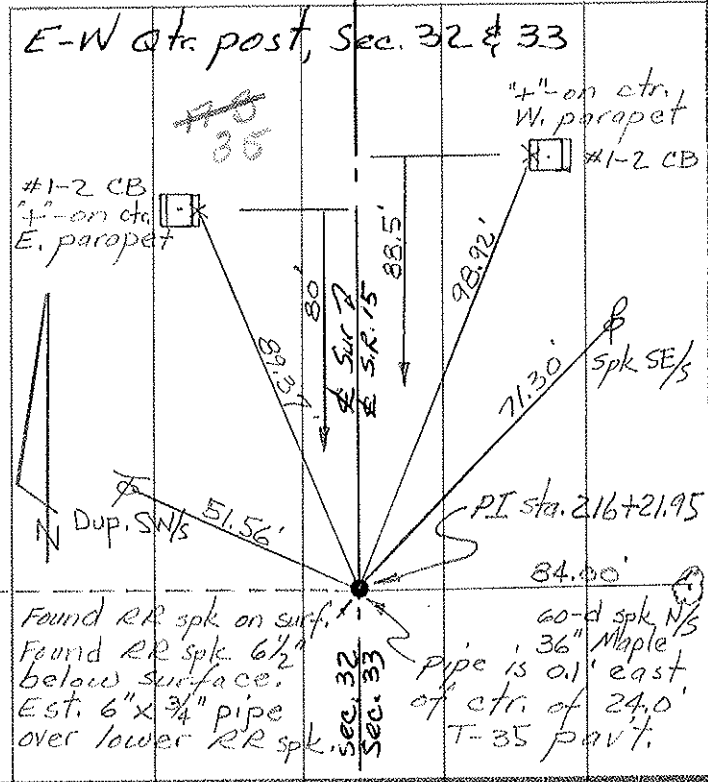 E-W Qtr. post, Sec. 32 & 33
35
"+" on ctr.
W. parapet
#1-2 CB
#1-2 CB
"+" on ctr.
E. parapet
80'
88.5'
98.92'
89.37'
℄ Sur
℄ S.R. 15
71.30'
spk SE/s
N
Dup. SW/s
51.56'
PI sta. 216+21.95
84.00'
60-d spk N/s
36" Maple
Found RR spk on surf.
Found RR spk 6½"
below surface.
Est. 6" x ¾" pipe
over lower RR spk.
Sec. 32
Sec. 33
pipe is 0.1' east
of ctr. of 24.0'
T-35 pav't.